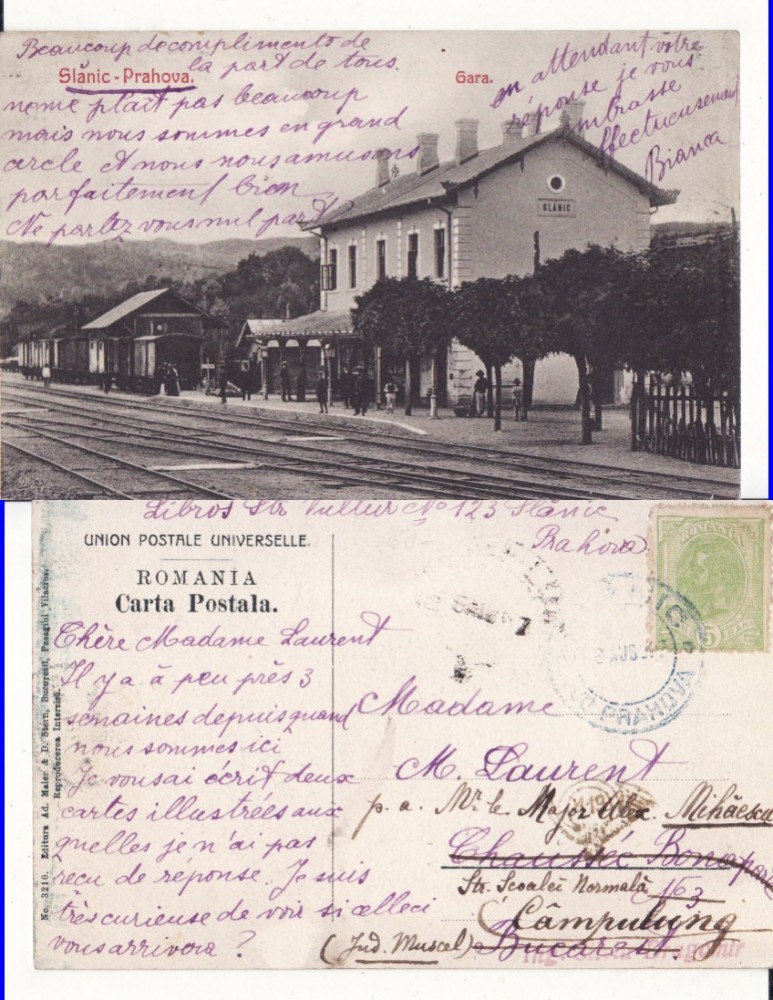 Beaucoup de compliments de
la part de tous.
Slănic-Prahova.
Gara.
neme plait pas beaucoup
mais nous sommes en grand
cercle et nous nous amusons
parfaitement bien
Ne partez vous nul part?
en attendant votre
réponse je vous
embrasse
affectueusement
Bianca
SLANIC
Libros Str Vultur No 123 Slănic
Prahova
UNION POSTALE UNIVERSELLE.
ROMANIA
Carta Postala.
No. 3210. Editura Ad. Maier & D. Stern, București, Pasagiul Vilacros.
Reproducerea Interzisă.
Chère Madame Laurent
Il y a à peu près 3
semaines depuis quand
nous sommes ici
Je vous ai écrit deux
cartes illustrées aux
quelles je n'ai pas
reçu de réponse. Je suis
très curieuse de voir si celleci
vous arrivera ?
ROMANIA
5 BANI
PRAHOVA
Madame
M. Laurent
p. a. Mr. le Major Alex. Mihăescu
Chaussée Bonapart
Str. Scoalei Normală 163
Câmpulung
(Jud. Muscel) Bucarest
Ing. Dragomir